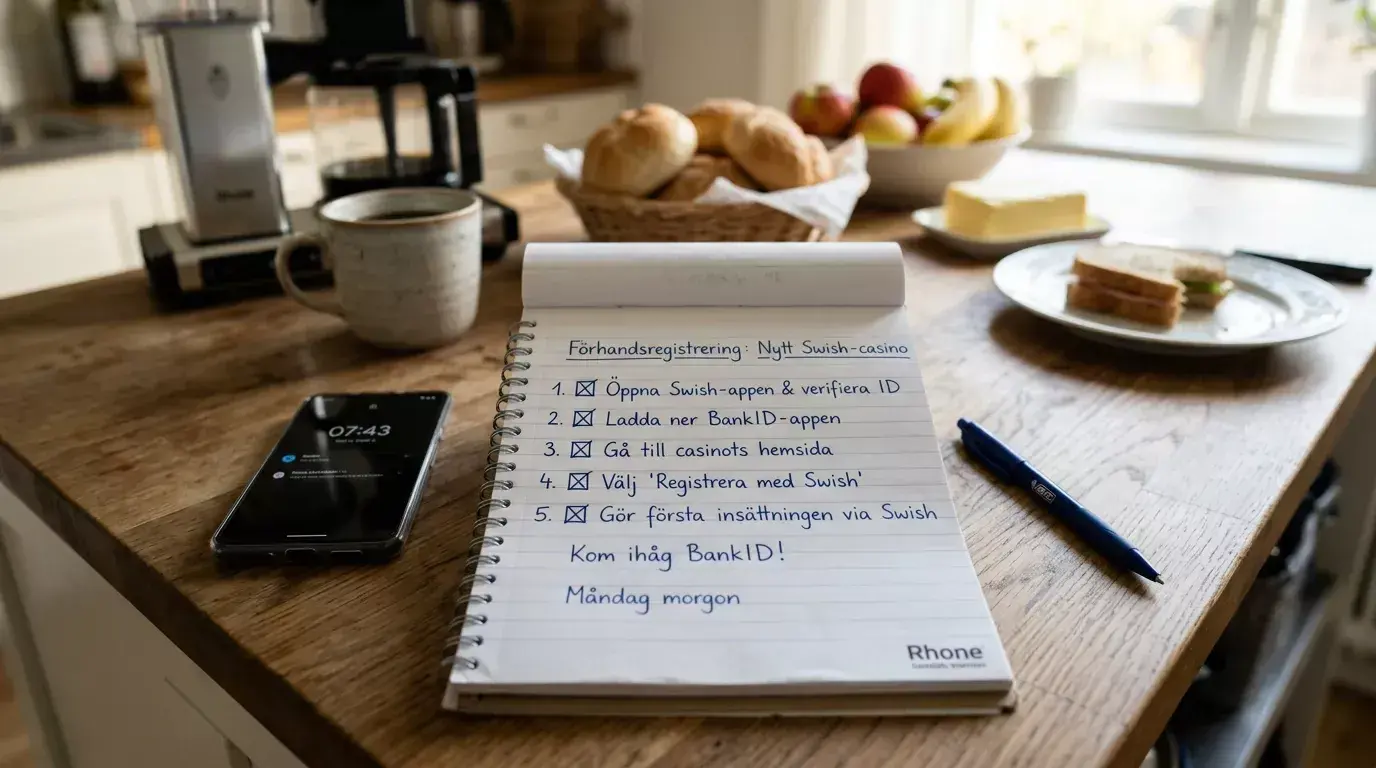 07:43
Förhandsregistrering: Nytt Swish-casino
1. ☒ Öppna Swish-appen & verifiera ID
2. ☒ Ladda ner BankID-appen
3. ☒ Gå till casinots hemsida
4. ☒ Välj 'Registrera med Swish'
5. ☒ Gör första insättningen via Swish
Kom ihåg BankID!
Måndag morgon
Rhone
BIC